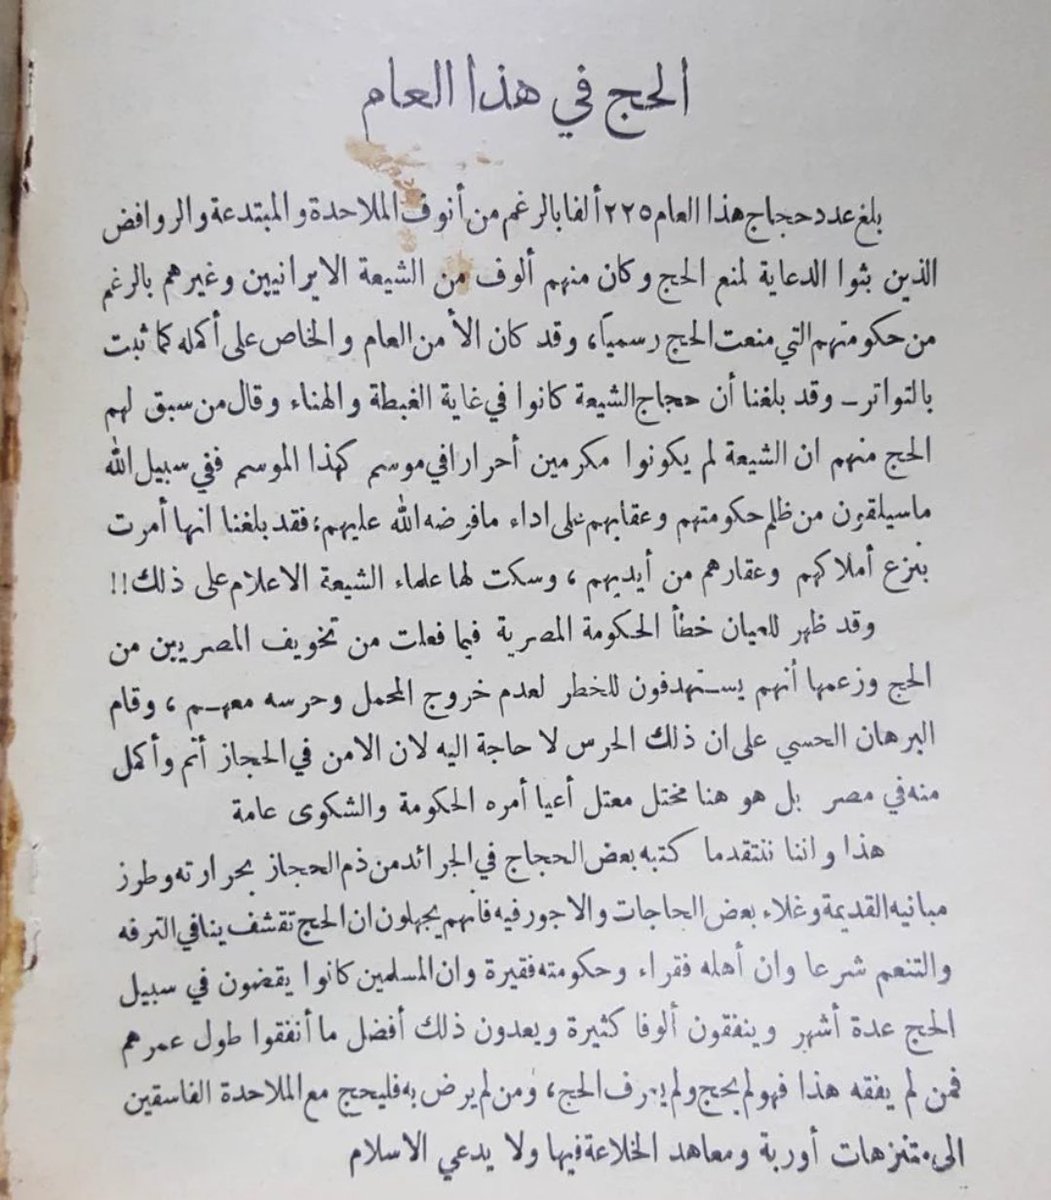 الحج في هذا العام
بلغ عدد حجاج هذا العام ٢٢٥ ألفا بالرغم من أنوف الملاحدة والمبتدعة والروافض
الذين بثوا الدعاية لمنع الحج وكان منهم ألوف من الشيعة الايرانيين وغيرهم بالرغم
من حكومتهم التي منعت الحج رسمياً، وقد كان الأمن العام والخاص على أكمله كما ثبت
بالتواتر ــ وقد بلغنا أن حجاج الشيعة كانوا في غاية الغبطة والهناء وقال من سبق لهم
الحج منهم ان الشيعة لم يكونوا مكرمين أحرارا في موسم كهذا الموسم ففي سبيل الله
ما سيلقون من ظلم حكومتهم وعقابهم على اداء ما فرضه الله عليهم؛ فقد بلغنا انها أمرت
بنزع أملاكهم وعقارهم من أيديهم، وسكت لها علماء الشيعة الاعلام على ذلك!!
وقد ظهر للعيان خطأ الحكومة المصرية فيما فعلت من تخويف المصريين من
الحج وزعمها أنهم يستهدفون للخطر لعدم خروج المحمل وحرسه معهم، وقام
البرهان الحسي على ان ذلك الحرس لا حاجة اليه لان الامن في الحجاز أتم وأكمل
منه في مصر بل هو هنا مختل معتل أعيا أمره الحكومة والشكوى عامة
هذا واننا ننتقد ما كتبه بعض الحجاج في الجرائد من ذم الحجاز بحرارته وطرز
مبانيه القديمة وغلاء بعض الحاجات والاجور فيه فانهم يجهلون ان الحج تقشف ينافي الترفه
والتنعم شرعا وان أهله فقراء وحكومته فقيرة وان المسلمين كانوا يقضون في سبيل
الحج عدة أشهر وينفقون ألوفا كثيرة ويعدون ذلك أفضل ما أنفقوا طول عمرهم
فمن لم يفقه هذا فهو لم يحج ولم يعرف الحج، ومن لم يرض به فليحج مع الملاحدة الفاسقين
الى متنزهات أوربة ومعاهد الخلاعة فيها ولا يدعي الاسلام